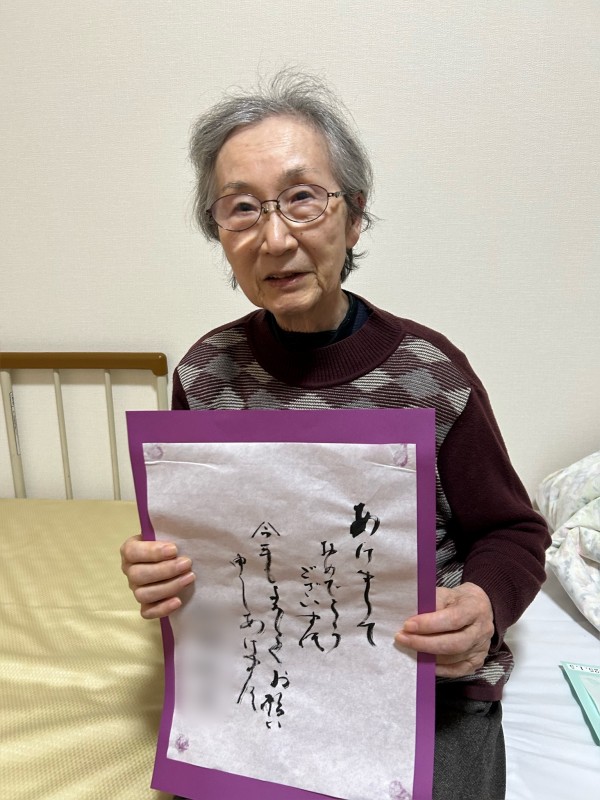 あけまして
おめでとう
ございます
今年もよろしくお願い
申しあげます